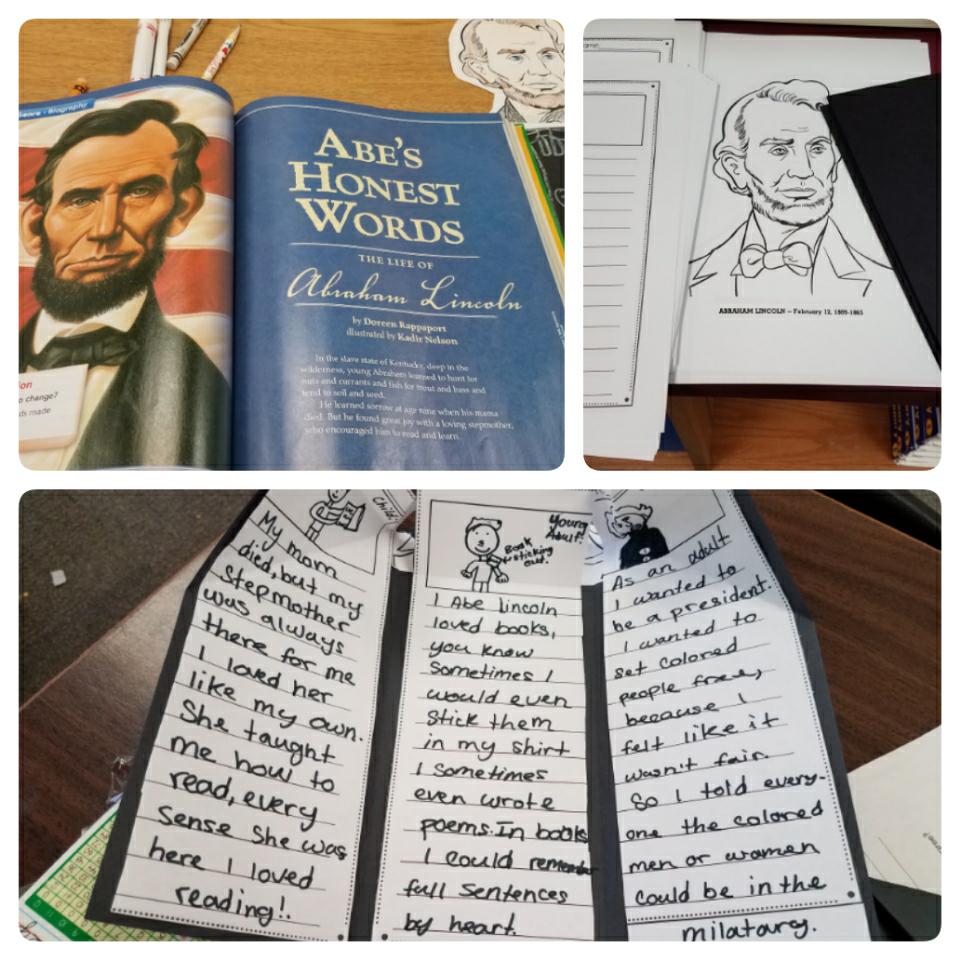 Biography
ABE'S
HONEST
WORDS
THE LIFE OF
Abraham Lincoln
by Doreen Rappaport
illustrated by Kadir Nelson
In the slave state of Kentucky, deep in the
wilderness, young Abraham learned to hunt for
nuts and currants and fish for trout and bass and
tend to soil and seed.
He learned sorrow at age nine when his mama
died. But he found great joy with a loving stepmother,
who encouraged him to read and learn.
change?
made
ABRAHAM LINCOLN – February 12, 1809-1865
Child
My mom
died, but my
stepmother
was always
there for me
I loved her
like my own.
She taught
me how to
read, every
sense she was
here I loved
reading!.
Young
Adult!
Book
sticking
out.
I Abe lincoln
loved books,
you know
sometimes I
would even
stick them
in my shirt
I sometimes
even wrote
poems. In books
I could remember
full sentences
by heart.
As an adult
I wanted to
be a president.
I wanted to
set colored
people free,
because I
felt like it
wasn't fair.
So I told every-
one the colored
men or women
could be in the
milatary.